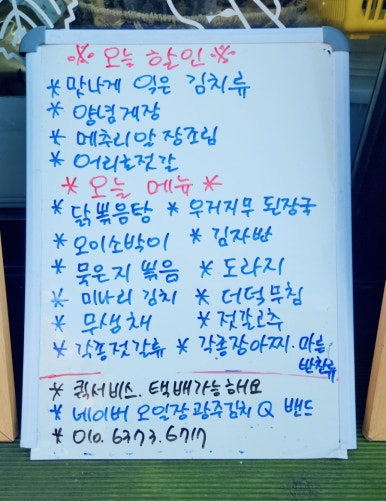 ※ 오늘 할인 ※
* 맛나게 익은 김치류
* 양념게장
* 메추리알 장조림
* 어리호젓갈
* 오늘 메뉴 *
* 닭볶음탕 * 우거지무 된장국
* 오이소박이 * 김자반
* 묵은지 볶음 * 도라지
* 미나리 김치 * 더덕무침
* 무생채 * 젓갈고추
* 각종젓갈류 * 각종장아찌. 마른반찬류
* 퀵서비스. 택배가능해요
* 네이버 오일장 광주김치 Q 밴드
* 010. 6373. 6717